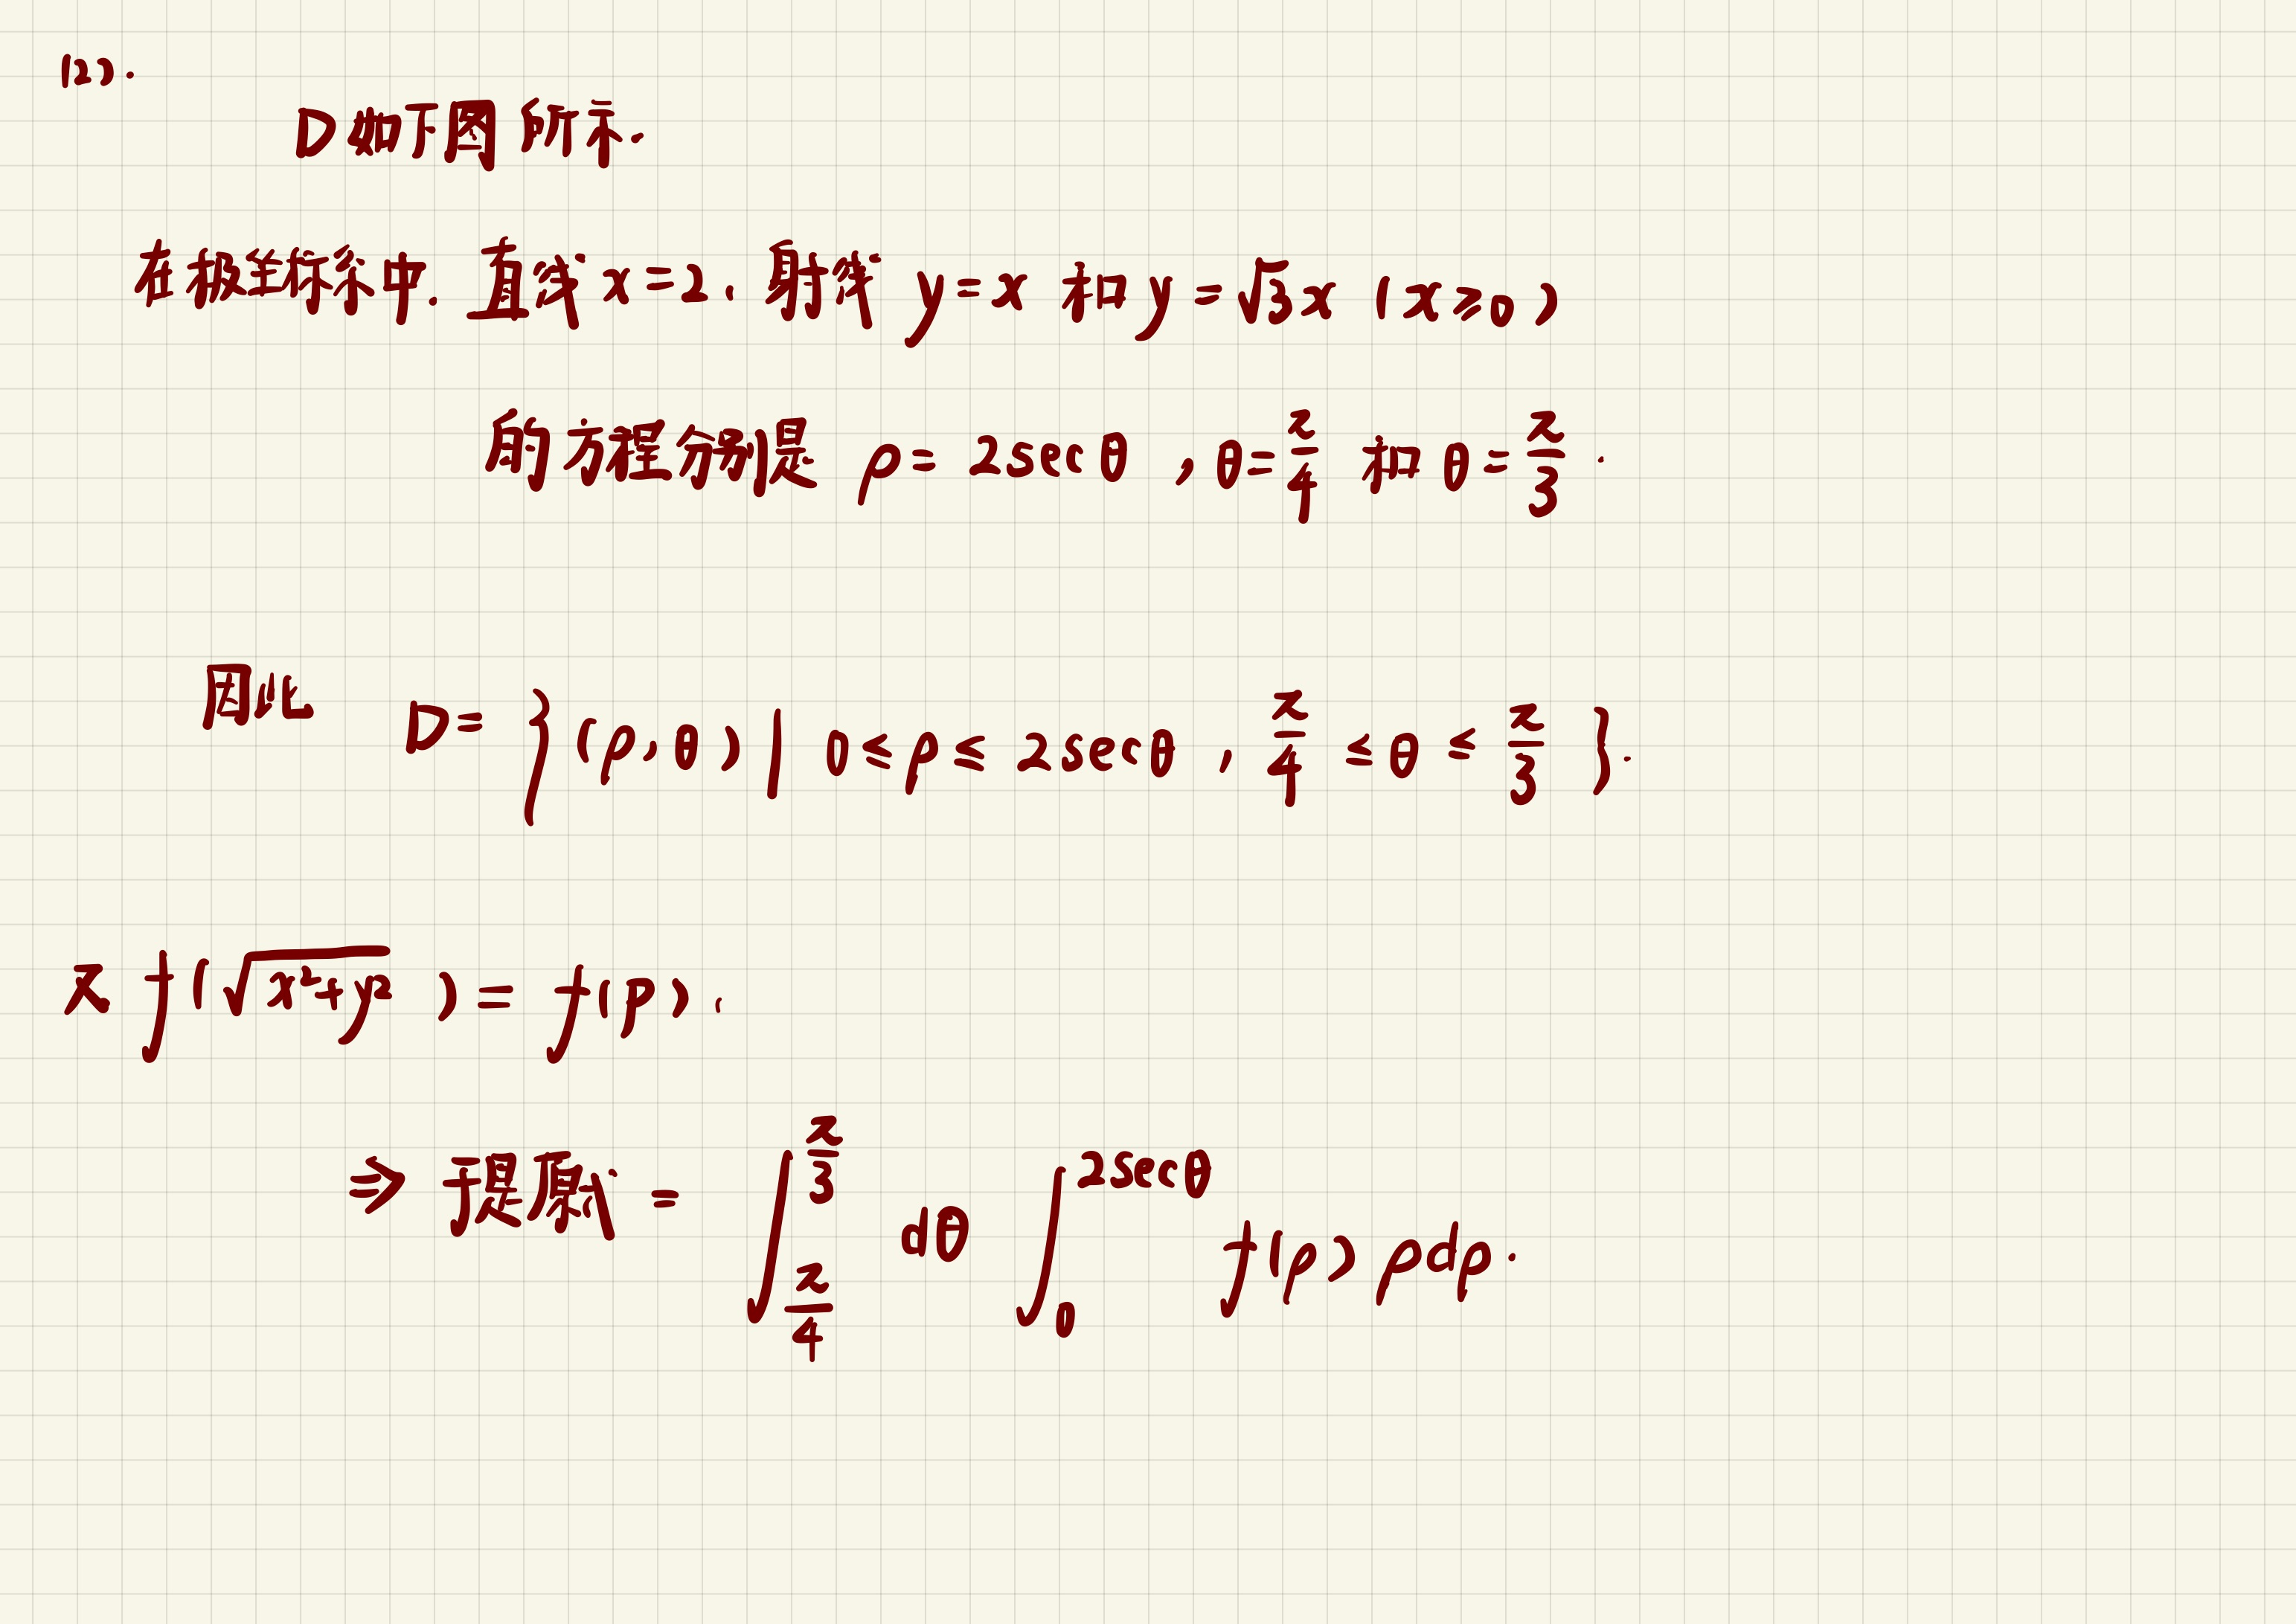 (2).
D如下图所示.
在极坐标系中, 直线 x=2, 射线 y=x 和 y=√3x (x≥0)
的方程分别是 ρ=2secθ, θ=π/4 和 θ=π/3.
因此 D={(ρ,θ)| 0≤ρ≤2secθ, π/4≤θ≤π/3}.
又 f(√(x²+y²))=f(ρ),
⇒ 于是原式 = ∫_{π/4}^{π/3} dθ ∫_0^{2secθ} f(ρ)ρdρ.